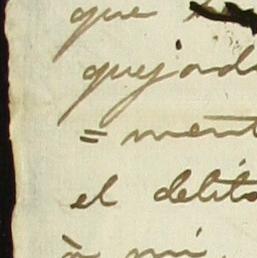 que
quejado
= ment
el delito
à mi,